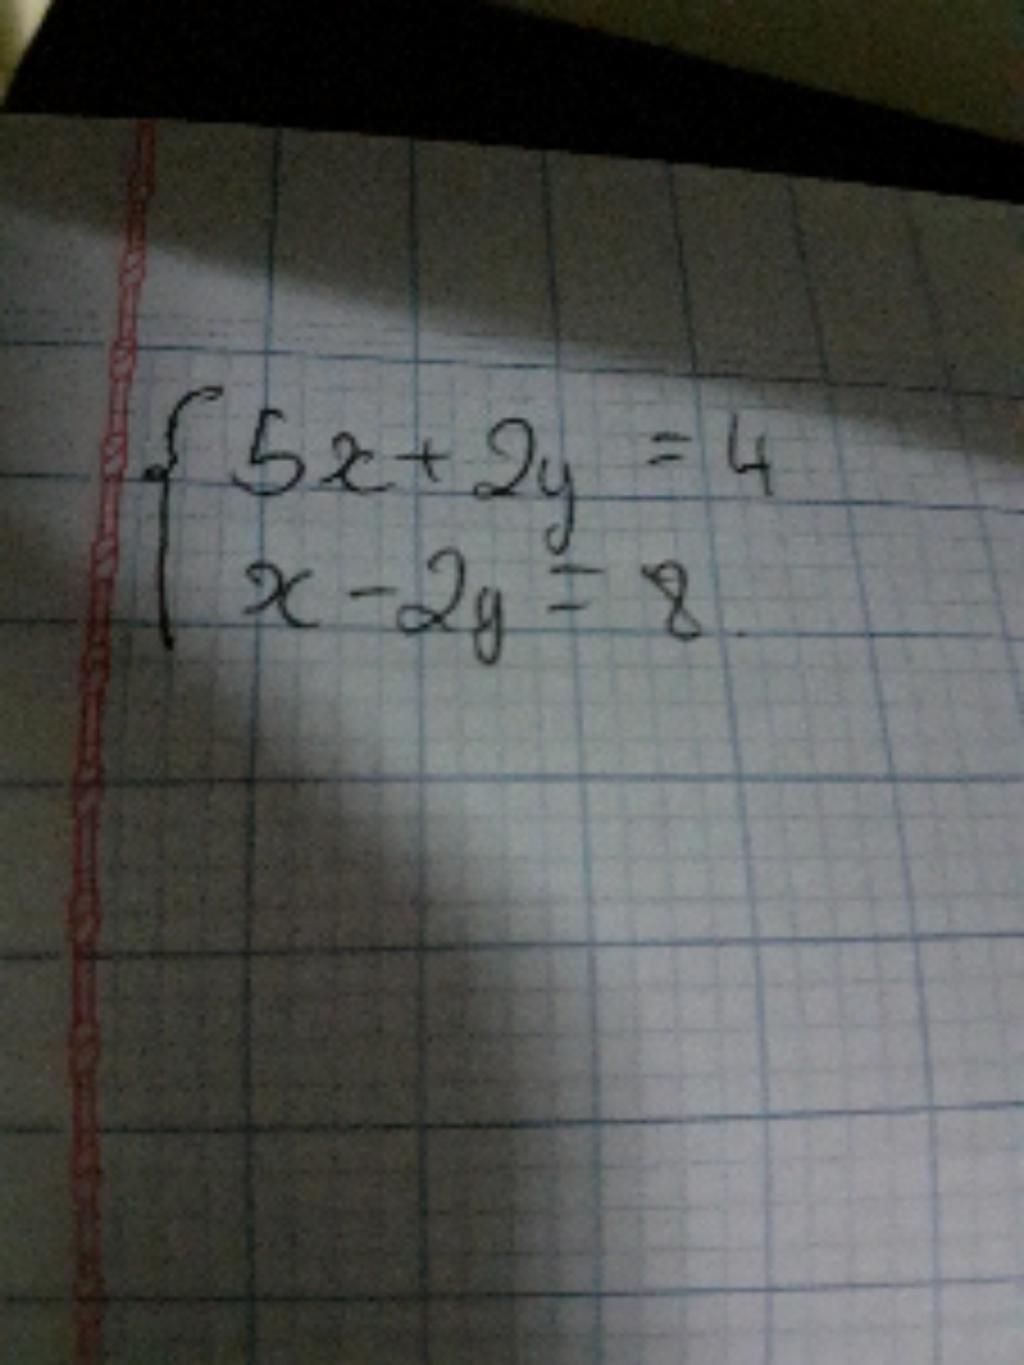 5x + 2y = 4
x - 2y = 8.